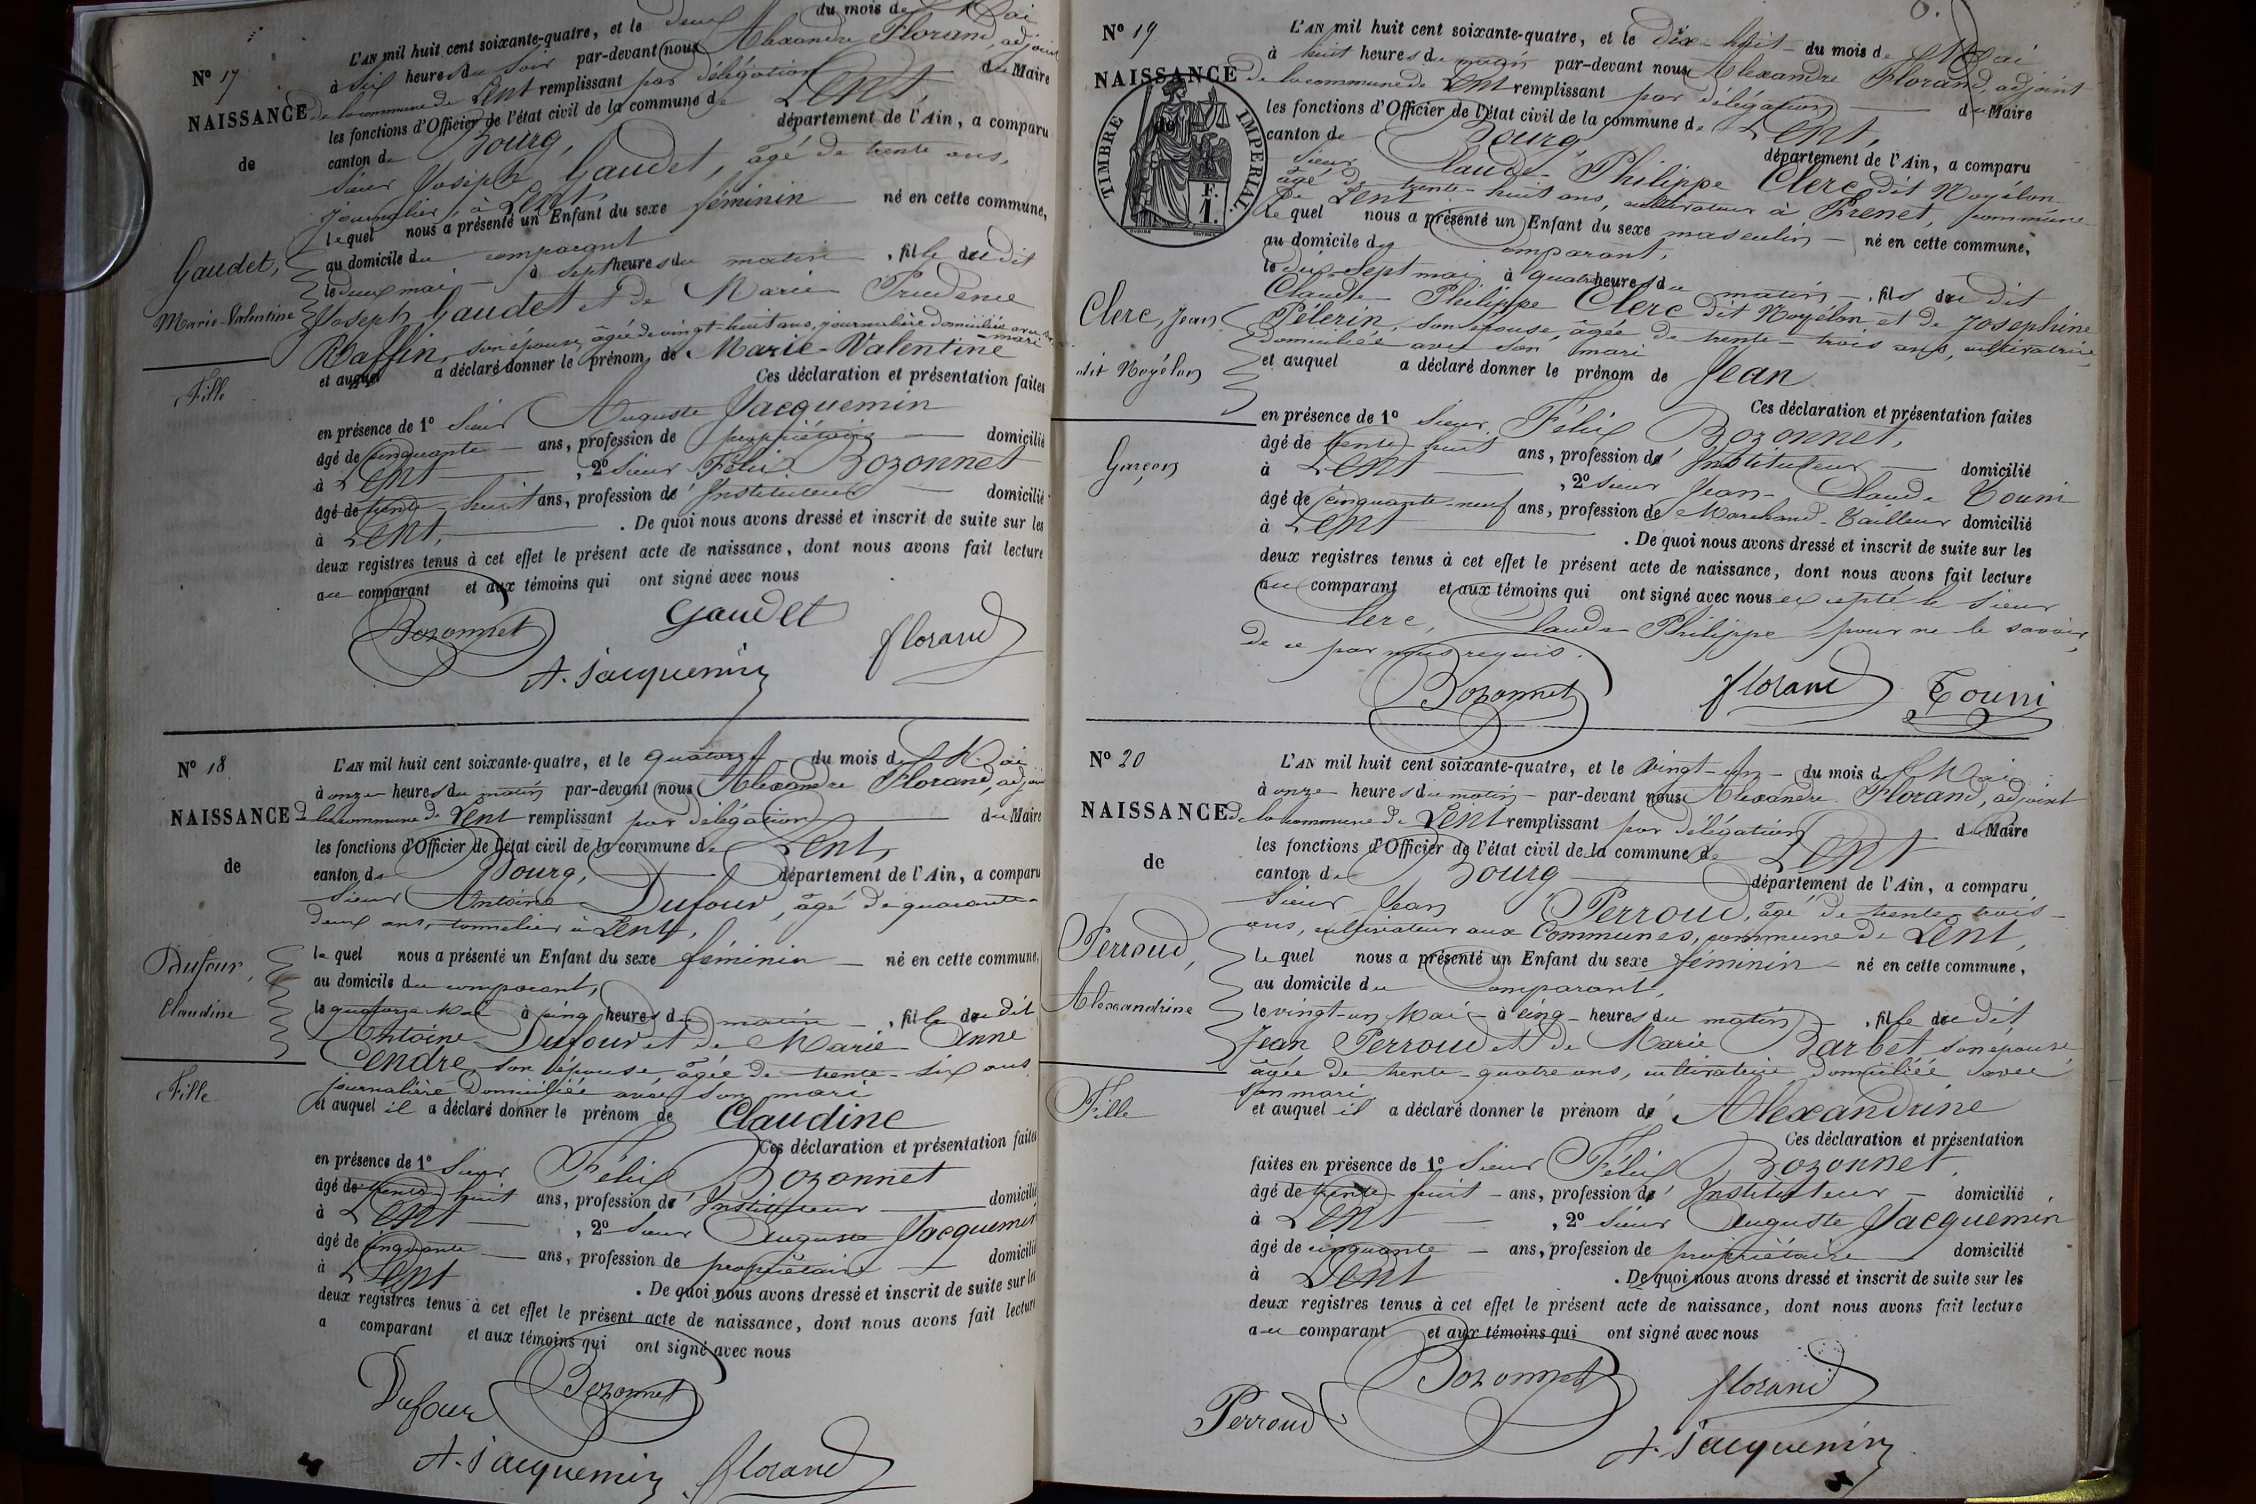 Nº 17
NAISSANCE
de
Gaudet,
Marie-Valentine
Fille
L'AN mil huit cent soixante-quatre, et le deux du mois de Mai
à six heures du soir par-devant nous Alexandre Florand, adjoint
de la commune de Lent remplissant par délégation du Maire
les fonctions d'Officier de l'état civil de la commune de Lent,
canton de Bourg, département de l'Ain, a comparu
Sieur Joseph Gaudet, âgé de trente ans,
journalier, à Lent,
lequel nous a présenté un Enfant du sexe féminin né en cette commune,
au domicile du comparant
le deux mai à sept heures du matin, fille du dit
Joseph Gaudet et de Marie Prudence
Raffin, son épouse, âgée de vingt-huit ans, journalière domiciliée avec son mari
et auquel a déclaré donner le prénom de Marie-Valentine
Ces déclaration et présentation faites
en présence de 1º Sieur Auguste Jacquemin
âgé de cinquante ans, profession de propriétaire domicilié
à Lent, 2º Sieur Félix Bozonnet
âgé de trente-huit ans, profession d' Instituteur domicilié
à Lent. De quoi nous avons dressé et inscrit de suite sur les
deux registres tenus à cet effet le présent acte de naissance, dont nous avons fait lecture
au comparant et aux témoins qui ont signé avec nous
Bozonnet Gaudet florand
A. Jacquemin
Nº 18
NAISSANCE
de
Dufour,
Claudine
Fille
L'AN mil huit cent soixante-quatre, et le quatorze du mois de Mai
à onze heures du matin par-devant nous Alexandre Florand, adjoint
de la commune de Lent remplissant par délégation du Maire
les fonctions d'Officier de l'état civil de la commune de Lent,
canton de Bourg, département de l'Ain, a comparu
Sieur Antoine Dufour, âgé de quarante-
deux ans, tonnelier à Lent,
lequel nous a présenté un Enfant du sexe féminin né en cette commune,
au domicile du comparant,
le quatorze Mai à cinq heures du matin, fille du dit
Antoine Dufour et de Marie Anne
Cendre, son épouse, âgée de trente-six ans
journalière domiciliée avec son mari
et auquel il a déclaré donner le prénom de Claudine
Ces déclaration et présentation faites
en présence de 1º Sieur Félix Bozonnet
âgé de trente huit ans, profession d' Instituteur domicilié
à Lent, 2º Sieur Auguste Jacquemin
âgé de cinquante ans, profession de propriétaire domicilié
à Lent. De quoi nous avons dressé et inscrit de suite sur les
deux registres tenus à cet effet le présent acte de naissance, dont nous avons fait lecture
a comparant et aux témoins qui ont signé avec nous
Dufour Bozonnet
A. Jacquemin florand
Nº 19
NAISSANCE
de
TIMBRE IMPERIAL
F.
1.
Clerc, Jean
dit Noyélon
Garçon
L'AN mil huit cent soixante-quatre, et le dix-huit du mois de Mai
à huit heures du matin par-devant nous Alexandre Florand, adjoint
de la commune de Lent remplissant par délégation du Maire
les fonctions d'Officier de l'état civil de la commune de Lent,
canton de Bourg, département de l'Ain, a comparu
Sieur Claude-Philippe Clerc dit Noyélon
âgé de trente-huit ans, cultivateur à Frenet, commune
de Lent
lequel nous a présenté un Enfant du sexe masculin né en cette commune,
au domicile du comparant,
le dix-sept mai à quatre heures du matin, fils du dit
Claude-Philippe Clerc dit Noyélon et de Josephine
Pélerin, son épouse, âgée de trente-trois ans, cultivatrice,
domiciliée avec son mari
et auquel a déclaré donner le prénom de Jean
Ces déclaration et présentation faites
en présence de 1º Sieur Félix Bozonnet,
âgé de trente huit ans, profession d' Instituteur domicilié
à Lent, 2º Sieur Jean-Claude Touni
âgé de cinquante-neuf ans, profession de Marchand-Tailleur domicilié
à Lent. De quoi nous avons dressé et inscrit de suite sur les
deux registres tenus à cet effet le présent acte de naissance, dont nous avons fait lecture
au comparant et aux témoins qui ont signé avec nous excepté le Sieur
Clerc, Claude Philippe pour ne le savoir,
de ce par nous requis.
Bozonnet florand Touni
Nº 20
NAISSANCE
de
Perroud,
Alexandrine
Fille
L'AN mil huit cent soixante-quatre, et le vingt-un du mois de Mai
à onze heures du matin par-devant nous Alexandre Florand, adjoint
de la commune de Lent remplissant par délégation du Maire
les fonctions d'Officier de l'état civil de la commune de Lent
canton de Bourg département de l'Ain, a comparu
Sieur Jean Perroud, âgé de trente-trois
ans, cultivateur aux Communes, commune de Lent,
lequel nous a présenté un Enfant du sexe féminin né en cette commune,
au domicile du comparant,
le vingt-un Mai à cinq heures du matin, fille du dit
Jean Perroud et de Marie Barbet, son épouse
âgée de trente-quatre ans, cultivatrice domiciliée avec
son mari
et auquel il a déclaré donner le prénom d' Alexandrine
Ces déclaration et présentation
faites en présence de 1º Sieur Félix Bozonnet,
âgé de trente huit ans, profession d' Instituteur domicilié
à Lent, 2º Sieur Auguste Jacquemin
âgé de cinquante ans, profession de propriétaire domicilié
à Lent. De quoi nous avons dressé et inscrit de suite sur les
deux registres tenus à cet effet le présent acte de naissance, dont nous avons fait lecture
au comparant et aux témoins qui ont signé avec nous
Perroud Bozonnet florand
A. Jacquemin